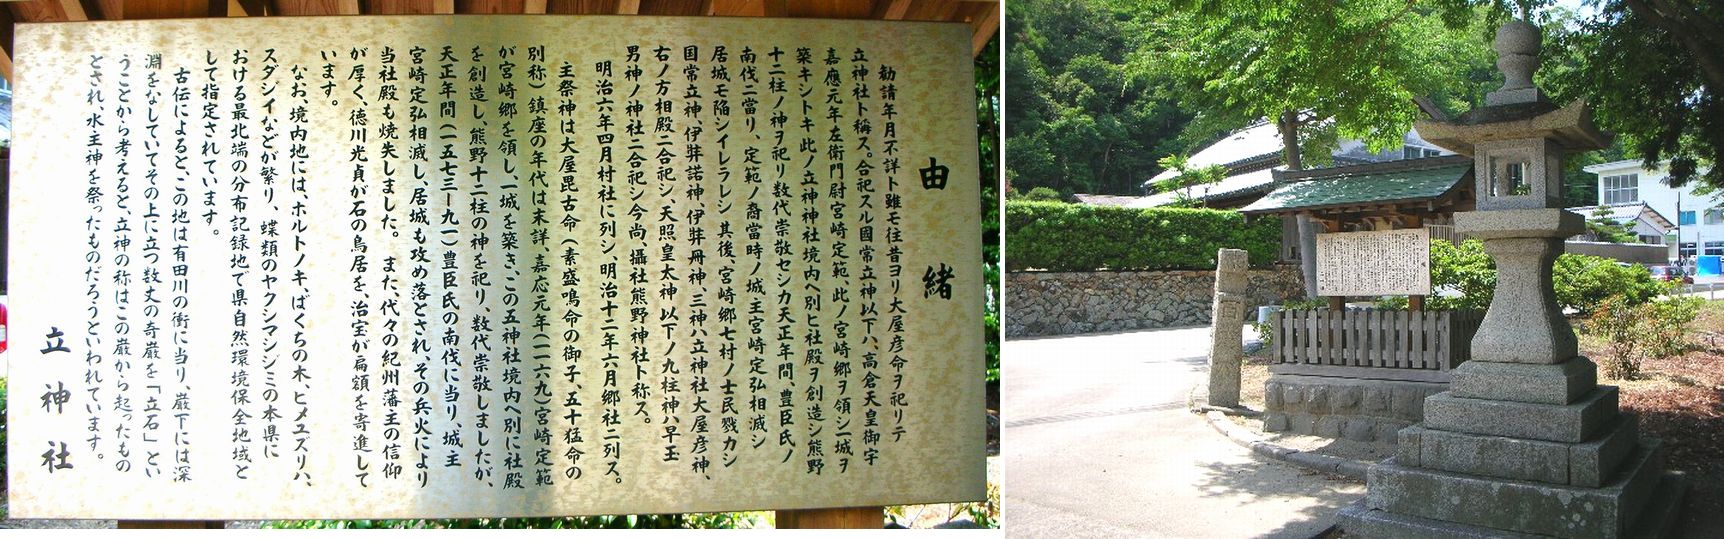 由緒
勧請年月不詳ト雖モ往昔ヨリ大屋彦命ヲ祀リテ
立神社ト稱ス。合祀スル國常立神以下ハ、高倉天皇御宇
嘉應元年左衛門尉宮崎定範、此ノ宮崎郷ヲ領シ一城ヲ
築キシトキ此ノ立神神社境内ヘ別ヒ社殿ヲ創造シ熊野
十二柱ノ神ヲ祀リ数代崇敬セシカ天正年間、豊臣氏ノ
南伐ニ當リ、定範ノ裔當時ノ城主宮崎定弘相滅シ
居城モ陥シイレラレシ其後、宮崎郷七村ノ士民戮カシ
国常立神、伊弉諾神、伊弉冊神、三神ハ立神社大屋彦神、
右ノ方相殿ニ合祀シ、天照皇太神以下ノ九柱神ハ早玉
男神ノ神社ニ合祀シ今尚、攝社熊野神社ト称ス。
明治六年四月村社に列シ、明治十二年六月郷社ニ列ス。
主祭神は大屋毘古命（素盛鳴命の御子、五十猛命の
別称）鎮座の年代は末詳、嘉応元年（一一六九）宮崎定範
が宮崎郷を領し、一城を築き、この五神社境内へ別に社殿
を創造し、熊野十二柱の神を祀り、数代崇敬しましたが、
天正年間（一五七三―九一）豊臣氏の南伐に当り、城主
宮崎定弘相滅し、居城も攻め落とされ、その兵火により
当社殿も焼失しました。また、代々の紀州藩主の信仰
が厚く、徳川光貞が石の鳥居を、治宝が扁額を寄進して
います。
なお、境内地には、ホルトノキ、ばくちの木、ヒメユズリハ、
スダシイなどが繁り、蝶類のヤクシマシジミの本県に
おける最北端の分布記録地で県自然環境保全地域と
して指定されています。
古伝によると、この地は有田川の衝に当り、巌下には深
淵をなしていてその上に立つ数丈の奇巌を「立石」とい
うことから考えると、立神の称はこの巌から起ったもの
とされ、水主神を祭ったものだろうといわれています。
立神社